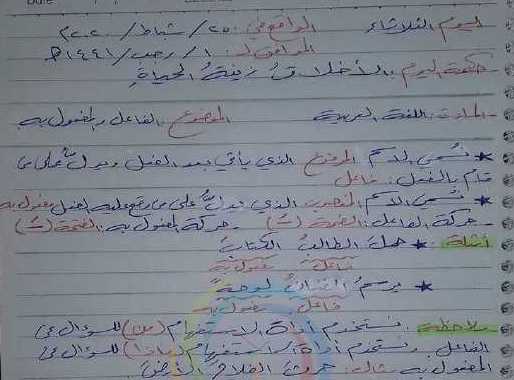 اليوم الثلاثاء الموافق ٢٥/شباط/٢٠٢٠
الموافق لـ ١/رجب/١٤٤١هـ
حكمة اليوم: الأخلاقُ زينةُ الحياةِ
المادة: اللغة العربية الموضوع: الفاعل والمفعول به
* نُسمي الاسم المرفوع الذي يأتي بعد الفعل ويدلُّ على من
قام بالفعل: فاعل
* نُسمي الاسم المنصوب الذي يدلُّ على من وقع عليه الفعل مفعول به
- حركة الفاعل: الضمة (ـُ) - حركة المفعول به: الفتحة (ـَ)
أمثلة: * حملَ الطالبُ الكتابَ
فاعل مفعول به
* يرسمُ الفنانُ لوحةً
فاعل مفعول به
ملاحظة: نستخدم أداة الاستفهام (من) للسؤال عن
الفاعل ونستخدم أداة الاستفهام (ماذا) للسؤال عن
المفعول به مثال: حرثَ الفلاحُ الأرضَ